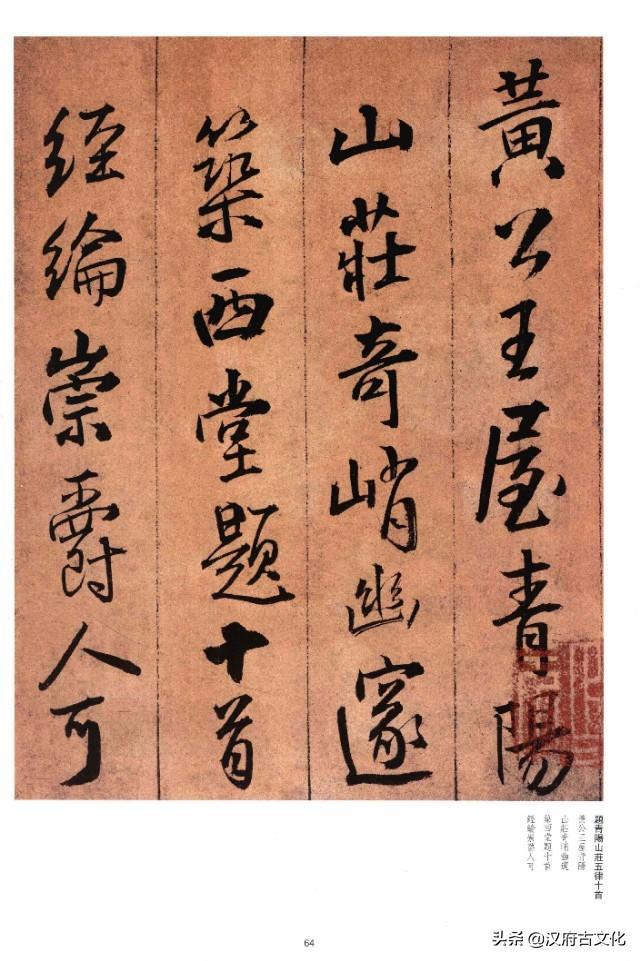 黃公王屋青陽
山莊奇峭幽邃
築西堂題十首
經綸崇爵人可
題青陽山莊五律十首
黃公王屋青陽
山莊奇峭幽邃
築西堂題十首
經綸崇爵人可
64
头条 @汉府古文化